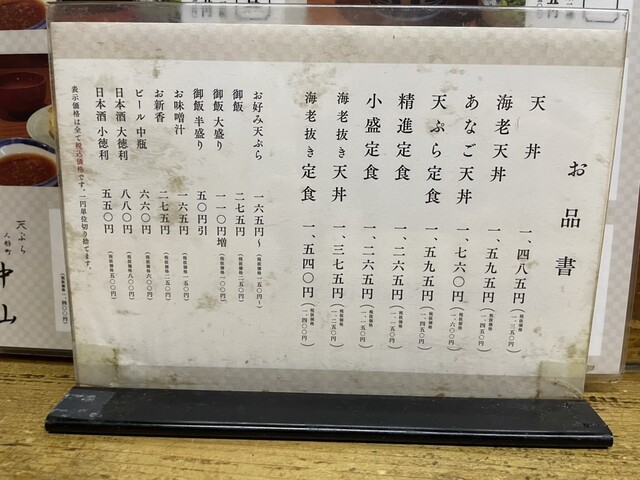 お品書
天丼 一、四八五円 (税抜価格 一、三五〇円)
海老天丼 一、五九五円 (税抜価格 一、四五〇円)
あなご天丼 一、七六〇円 (税抜価格 一、六〇〇円)
天ぷら定食 一、五九五円 (税抜価格 一、四五〇円)
精進定食 一、二六五円 (税抜価格 一、一五〇円)
小盛定食 一、二六五円 (税抜価格 一、一五〇円)
海老抜き天丼 一、三七五円 (税抜価格 一、二五〇円)
海老抜き定食 一、五四〇円 (税抜価格 一、四〇〇円)
お好み天ぷら 一六五円〜 (税抜価格 一五〇円〜)
御飯 二七五円 (税抜価格 二五〇円)
御飯 大盛り 一一〇円増 (税抜価格 一〇〇円)
御飯 半盛り 五〇円引
お味噌汁 一六五円 (税抜価格 一五〇円)
お新香 二七五円 (税抜価格 二五〇円)
ビール 中瓶 六六〇円 (税抜価格 六〇〇円)
日本酒 大徳利 八八〇円 (税抜価格 八〇〇円)
日本酒 小徳利 五五〇円 (税抜価格 五〇〇円)
表示価格は全て税込価格です。一円単位切り捨てます。
天ぷら
人形町
中山